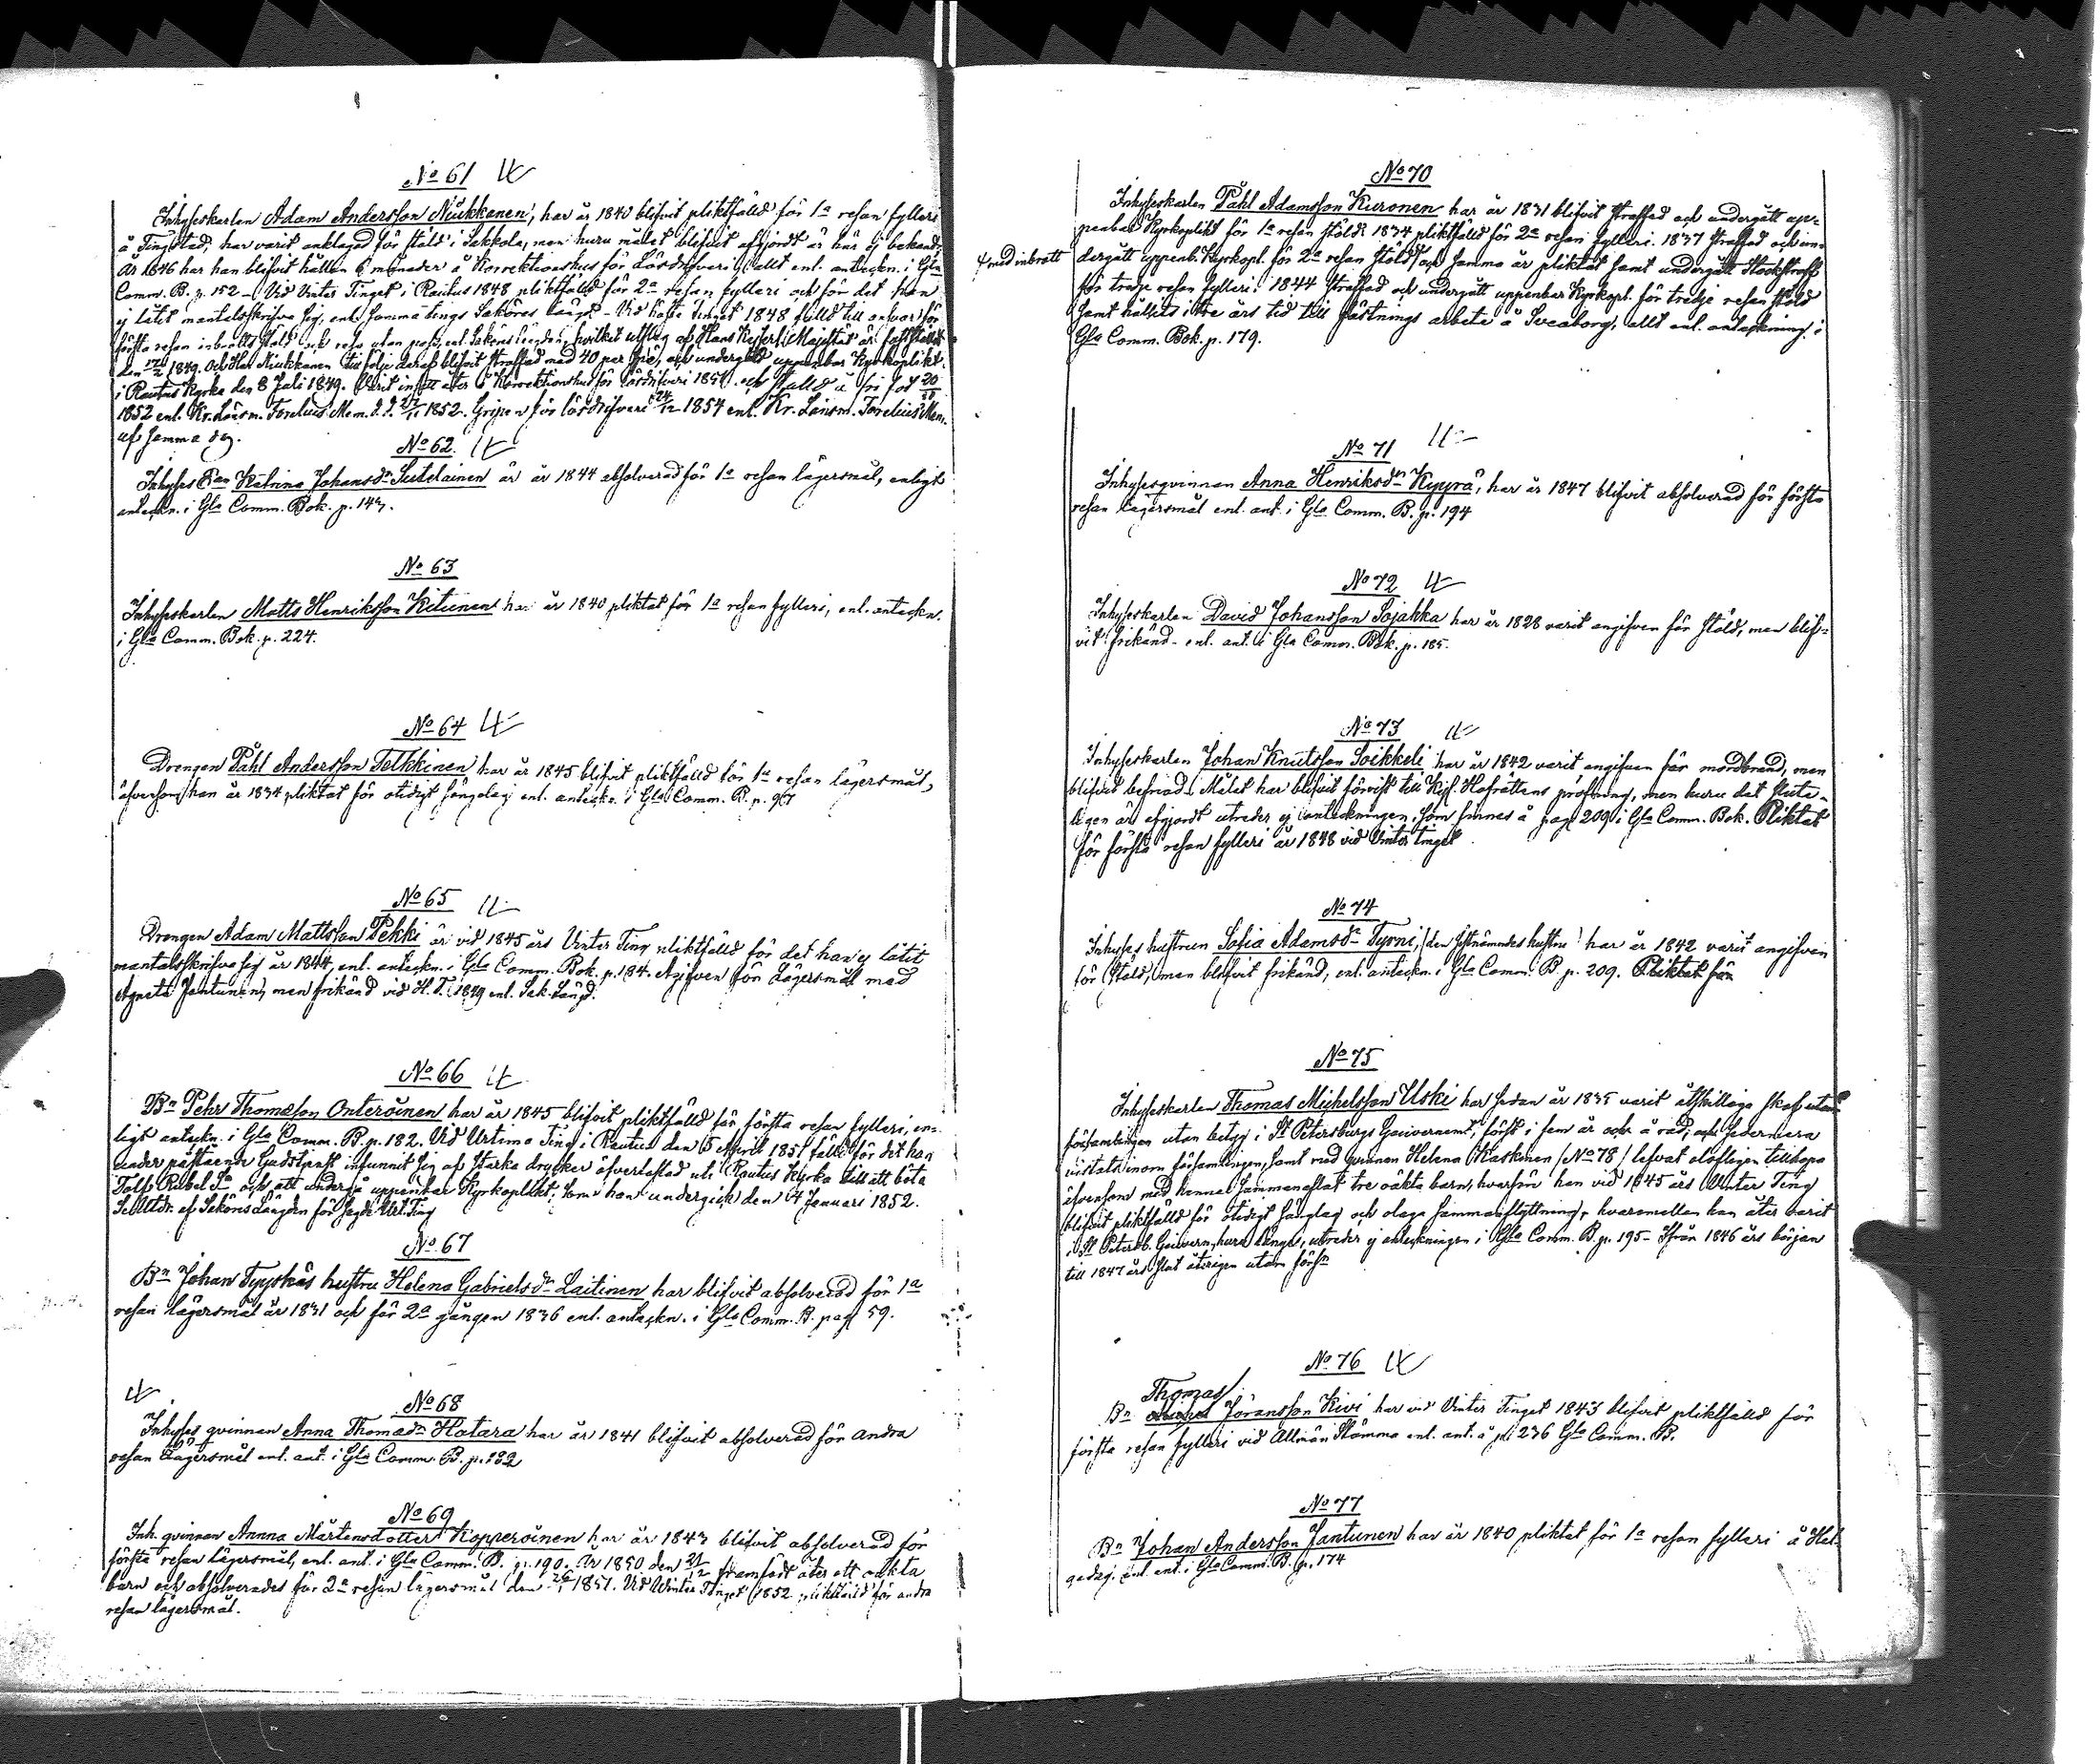 No 61
Inhyseskarlen Adam Andersson Niukkanen, har år 1840 blifvit pliktfälld för 1a resan fylleri
å Tingstad, har varit anklagad för stöld i Sakkola, men huru målet blifvit afgjordt är här ej bekant.
År 1846 har han blifvit hållen 6 månader å Korrektionshus för Lösdrifveri, allt enl. anteckn. i Gla
Comm. B. p. 152 - Vid Vinter Tinget i Rautus 1848 pliktfälld för 2a resan fylleri och för det han
ej låtit mantalsskrifva sig, enl. samma tings Saköres längd - Vid höste tinget 1848 fälld till ansvar för
första resan inbrotts stöld och resa utan pass, enl. Saköreslängden, hvilket utslag af Hans Kejserl. Majestät är fastställdt
den 1849. Och Niukkanen till följe deraf blifvit straffad med 40 par spö, och undergått uppenbar Kyrkoplikt
i Rautus Kyrka den 8 Juli 1849. Varit insatt åter å Korrektionshus för lösdrifveri 1851 och ställd å fri fot
1852 enl. Kr. Länsm. Forelius Mem. d. d. 1852. Gripen för lösdrifveri 1854 enl. Kr. Länsm. Forelius Mem.
af samma dag.
No 62.
Inhyses Katrina Johansdr Suutelainen är år 1844 absolverad för 1a resan lägersmål, enligt
anteckn. i Gla Comm. Bok. p. 143.
No 63
Inhyseskarlen Matts Henriksson Kitunen har år 1840 pliktat för 1a resan fylleri, enl. anteckn.
i Gla Comm. Bok. p. 224.
No 64
Drengen Påhl Andersson Tolkkinen har år 1845 blifvit pliktfälld för 1a resan lägersmål,
äfvensom han år 1834 pliktat för otidigt sänglag enl. anteckn. i Gla Comm. B. p. 97
No 65
Drengen Adam Mattsson Pekki är vid 1845 års Vinter Ting pliktfälld för det han ej låtit
mantalsskrifva sig år 1844, enl. anteckn. i Gla Comm. Bok. p. 184. Angifven för Lägersmål med
Agneta Jantunen, men frikänd vid H. T. 1849 enl. Sak. Längd.
No 66
Bn Pehr Thomasson Onteroinen har år 1845 blifvit pliktfälld för första resan fylleri, en-
ligt anteckn. i Gla Comm. B. p. 182. Vid Urtima Ting i Rautus den 5 April 1851 fälld för det han
under påstående Gudstjenst infunnit sig af starka drycker öfverlastad uti Rautus Kyrka till att böta
Tolf Rubel S. och att undergå uppenbar Kyrkoplikt; som han undergick den 4 Januari 1852.
af Saköres Längden för sagde Urt. Ting
No 67
Bn Johan Tyyskäs hustru Helena Gabrielsdr Laitinen har blifvit absolverad för 1a
resan lägersmål år 1831 och för 2a gången 1836 enl. anteckn. i Gla Comm. B. pag 59.
No 68
Inhyses qvinnan Anna Thomasdr Hatara har år 1841 blifvit absolverad för andra
resan Lägersmål enl. ant. i Gla Comm. B. p. 182
No 69
Inh. qvinnan Annna Mårtensdotter Kopperoinen har år 1843 blifvit absolverad för
första resan lägersmål, enl. ant. i Gla Comm. B. p. 190. År 1850 den 21/12 framfödt åter ett oäkta
barn och absolverades för 2a resan lägersmål den 1851. Vid Vinter Tinget 1852 pliktfälld för andra
resan lägersmål.
No 70
Inhyseskarlen Påhl Adamsson Kuronen har år 1831 blifvit straffad och undergått up-
penbar Kyrkoplikt för 1a resan stöld; 1834 pliktfälld för 2a resan fylleri. 1837 straffad och un-
med inbrott
dergått uppenb. Kyrkopl. för 2a resan stöld, och samma år pliktat samt undergått Stockstraff
för tredje resan fylleri; 1844 straffad och undergått uppenbar Kyrkopl. för tredje resan stöld
samt hållits i tre års tid till fästnings arbete å Sveaborg, allt enl. anteckning i
Gla Comm. Bok. p. 179.
No 71
Inhysesqvinnan Anna Henriksdr Kyyrä, har år 1847 blifvit absolverad för första
resan lägersmål enl. ant. i Gla Comm. B. p. 194
No 72
Inhyseskarlen David Johansson Sojakka har år 1828 varit angifven för stöld, men blif-
vit frikänd - enl. ant. i Gla Comm. Bok. p. 185.
No 73
Inhyseskarlen Johan Knutsson Soikkeli har år 1842 varit angifven för mordbrand, men
blifvit befriad. Målet har blifvit förvist till Kejs. Hofrättens pröfning, men huru det slute-
ligen är afgjordt utreder ej anteckningen, som finnes å pag 209 i Gla Comm. Bok. Pliktat
för första resan fylleri år 1848 vid Vinter tinget
No 74
Inhyses hustrun Sofia Adamsdr Tyrni, (den sistnämndes hustru) har år 1842 varit angifven
för Stöld, men blifvit frikänd, enl. anteckn. i Gla Comm. B. p. 209. Pliktat för
No 75
Inhyseskarlen Thomas Michelsson Uski har sedan år 1835 varit åtskilliga skof utom
församlingen utan betyg i St Petersburgs Gouvernement, först i fem år och å rad, och sedermera
vistats inom församlingen, samt med qvinnan Helena Kaskinen (No 78) lefvat olofligen tillhopa
äfvensom med henne sammanaflat tre oäkta barn, hvarför han vid 1845 års Vinter Ting
blifvit pliktfälld för otidigt sänglag och olaga sammanflyttning, hvaremellan han åter varit
i St Petersb. Gouvern., huru länge, utreder ej anteckningen i Gla Comm. B. p. 195 - Ifrån 1846 års början
till 1847 års slut återigen utom förs.
No 76
Thomas
Bn Jöransson Kivi har vid Vinter Tinget 1843 blifvit pliktfälld för
första resan fylleri vid Allmän Stämma enl. ant. å p. 236 Gla Comm. B.
No 77
Bn Johan Andersson Jantunen har år 1840 pliktat för 1a resan fylleri å Hel-
gedag. enl. ant. i Gla Comm. B. p. 174